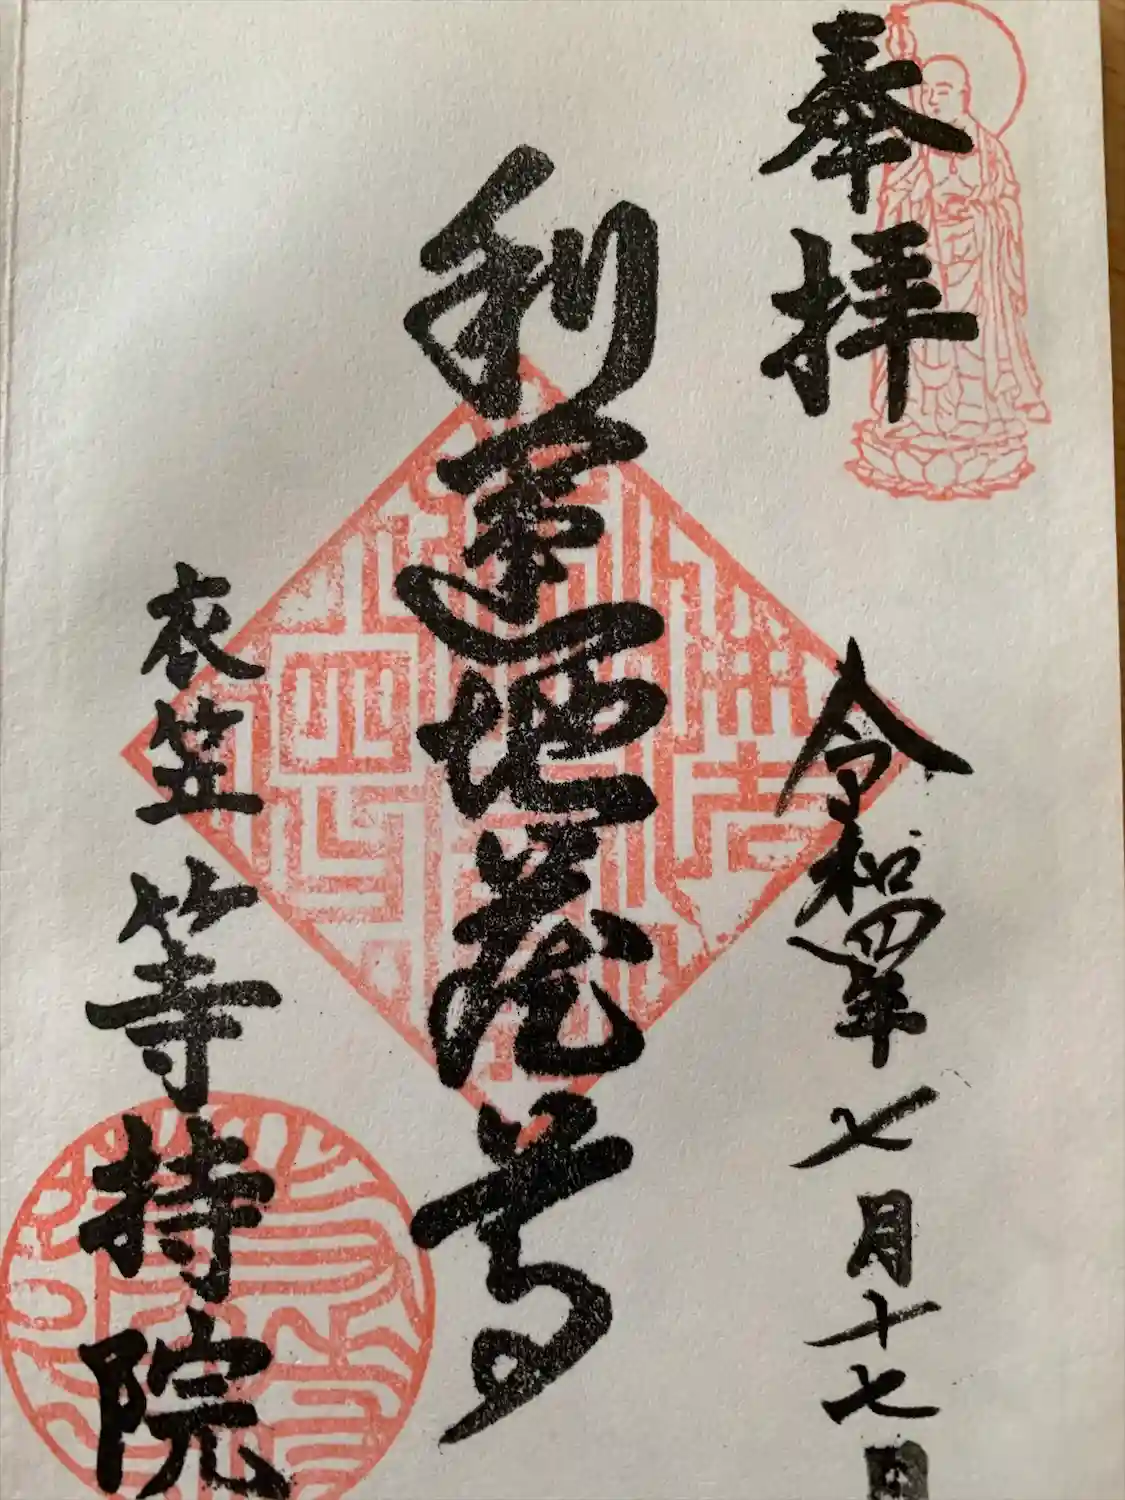 奉拝
令和四年七月十七日
利運地蔵尊
衣笠 等持院